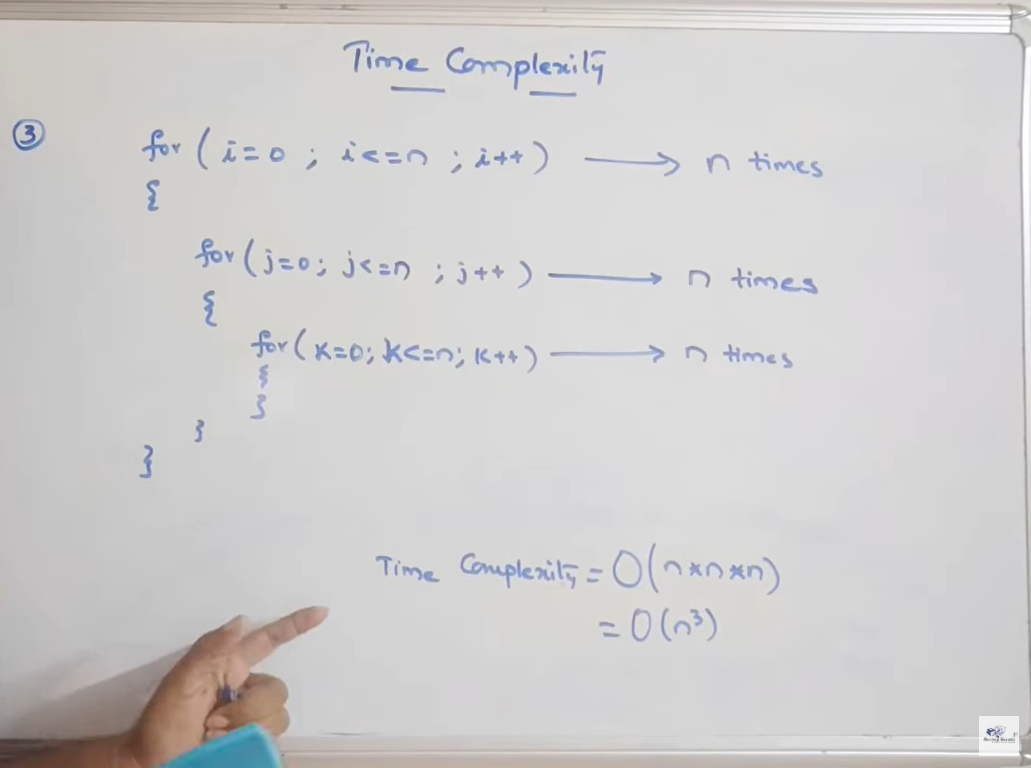 Time Complexity
③ for ( i=0 ; i<=n ; i++ ) ⟶ n times
{
for ( j=0 ; j<=n ; j++ ) ⟶ n times
{
for ( k=0 ; k<=n ; k++ ) ⟶ n times
{
}
}
}
Time Complexity = O(n*n*n)
= O(n³)